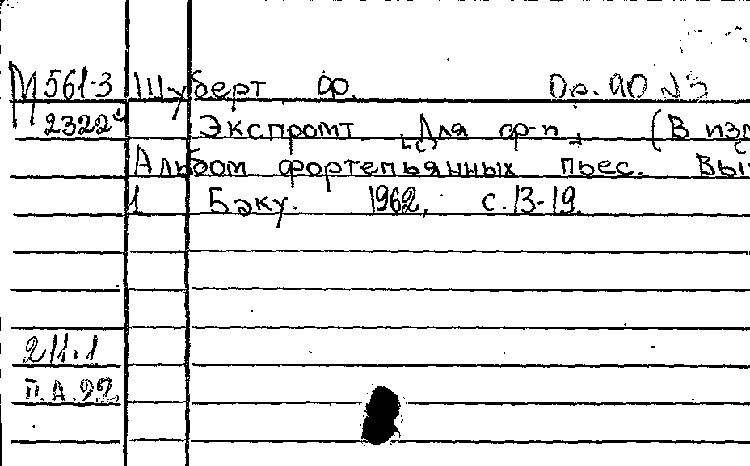 М561-3 Шуберт Ф. Ор. 90 №3
2322 Экспромт. Для ф-п. (В изд
Альбом фортепьянных пьес. Вып
1 Баку. 1962, с. 13-19.
211.1
П.А.92